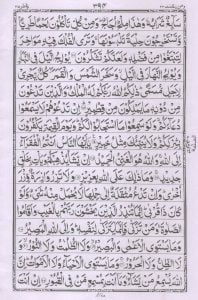 ۳۹۴
سَآئِغٌ شَرَابُهٗ وَهٰذَا مِلْحٌ اُجَاجٌ ؕ وَمِنْ كُلٍّ تَاْكُلُوْنَ لَحْمًا طَرِيًّا
وَّتَسْتَخْرِجُوْنَ حِلْيَةً تَلْبَسُوْنَهَا ۚ وَتَرَى الْفُلْكَ فِيْهِ مَوَاخِرَ
لِتَبْتَغُوْا مِنْ فَضْلِهٖ وَلَعَلَّكُمْ تَشْكُرُوْنَ ۝ يُوْلِجُ الَّيْلَ فِي النَّهَارِ
وَيُوْلِجُ النَّهَارَ فِي الَّيْلِ ۙ وَسَخَّرَ الشَّمْسَ وَالْقَمَرَ ۖ كُلٌّ يَّجْرِيْ
لِاَجَلٍ مُّسَمًّى ؕ ذٰلِكُمُ اللّٰهُ رَبُّكُمْ لَهُ الْمُلْكُ ؕ وَالَّذِيْنَ تَدْعُوْنَ
مِنْ دُوْنِهٖ مَا يَمْلِكُوْنَ مِنْ قِطْمِيْرٍ ۝ اِنْ تَدْعُوْهُمْ لَا يَسْمَعُوْا
دُعَآءَكُمْ ۚ وَلَوْ سَمِعُوْا مَا اسْتَجَابُوْا لَكُمْ ؕ وَيَوْمَ الْقِيٰمَةِ يَكْفُرُوْنَ
بِشِرْكِكُمْ ؕ وَلَا يُنَبِّئُكَ مِثْلُ خَبِيْرٍ ۝ يٰۤاَيُّهَا النَّاسُ اَنْتُمُ الْفُقَرَآءُ
اِلَى اللّٰهِ ۚ وَاللّٰهُ هُوَ الْغَنِيُّ الْحَمِيْدُ ۝ اِنْ يَّشَاْ يُذْهِبْكُمْ وَيَاْتِ بِخَلْقٍ
جَدِيْدٍ ۝ وَمَا ذٰلِكَ عَلَى اللّٰهِ بِعَزِيْزٍ ۝ وَلَا تَزِرُ وَازِرَةٌ وِّزْرَ
اُخْرٰى ؕ وَاِنْ تَدْعُ مُثْقَلَةٌ اِلٰى حِمْلِهَا لَا يُحْمَلْ مِنْهُ شَيْءٌ وَّلَوْ
كَانَ ذَا قُرْبٰى ؕ اِنَّمَا تُنْذِرُ الَّذِيْنَ يَخْشَوْنَ رَبَّهُمْ بِالْغَيْبِ وَاَقَامُوا
الصَّلٰوةَ ؕ وَمَنْ تَزَكّٰى فَاِنَّمَا يَتَزَكّٰى لِنَفْسِهٖ ؕ وَاِلَى اللّٰهِ الْمَصِيْرُ ۝
وَمَا يَسْتَوِي الْاَعْمٰى وَالْبَصِيْرُ ۝ وَلَا الظُّلُمٰتُ وَلَا النُّوْرُ ۝
وَلَا الظِّلُّ وَلَا الْحَرُوْرُ ۝ وَمَا يَسْتَوِي الْاَحْيَآءُ وَلَا الْاَمْوَاتُ ؕ اِنَّ
اللّٰهَ يُسْمِعُ مَنْ يَّشَآءُ ۚ وَمَاۤ اَنْتَ بِمُسْمِعٍ مَّنْ فِي الْقُبُوْرِ ۝ اِنْ اَنْتَ